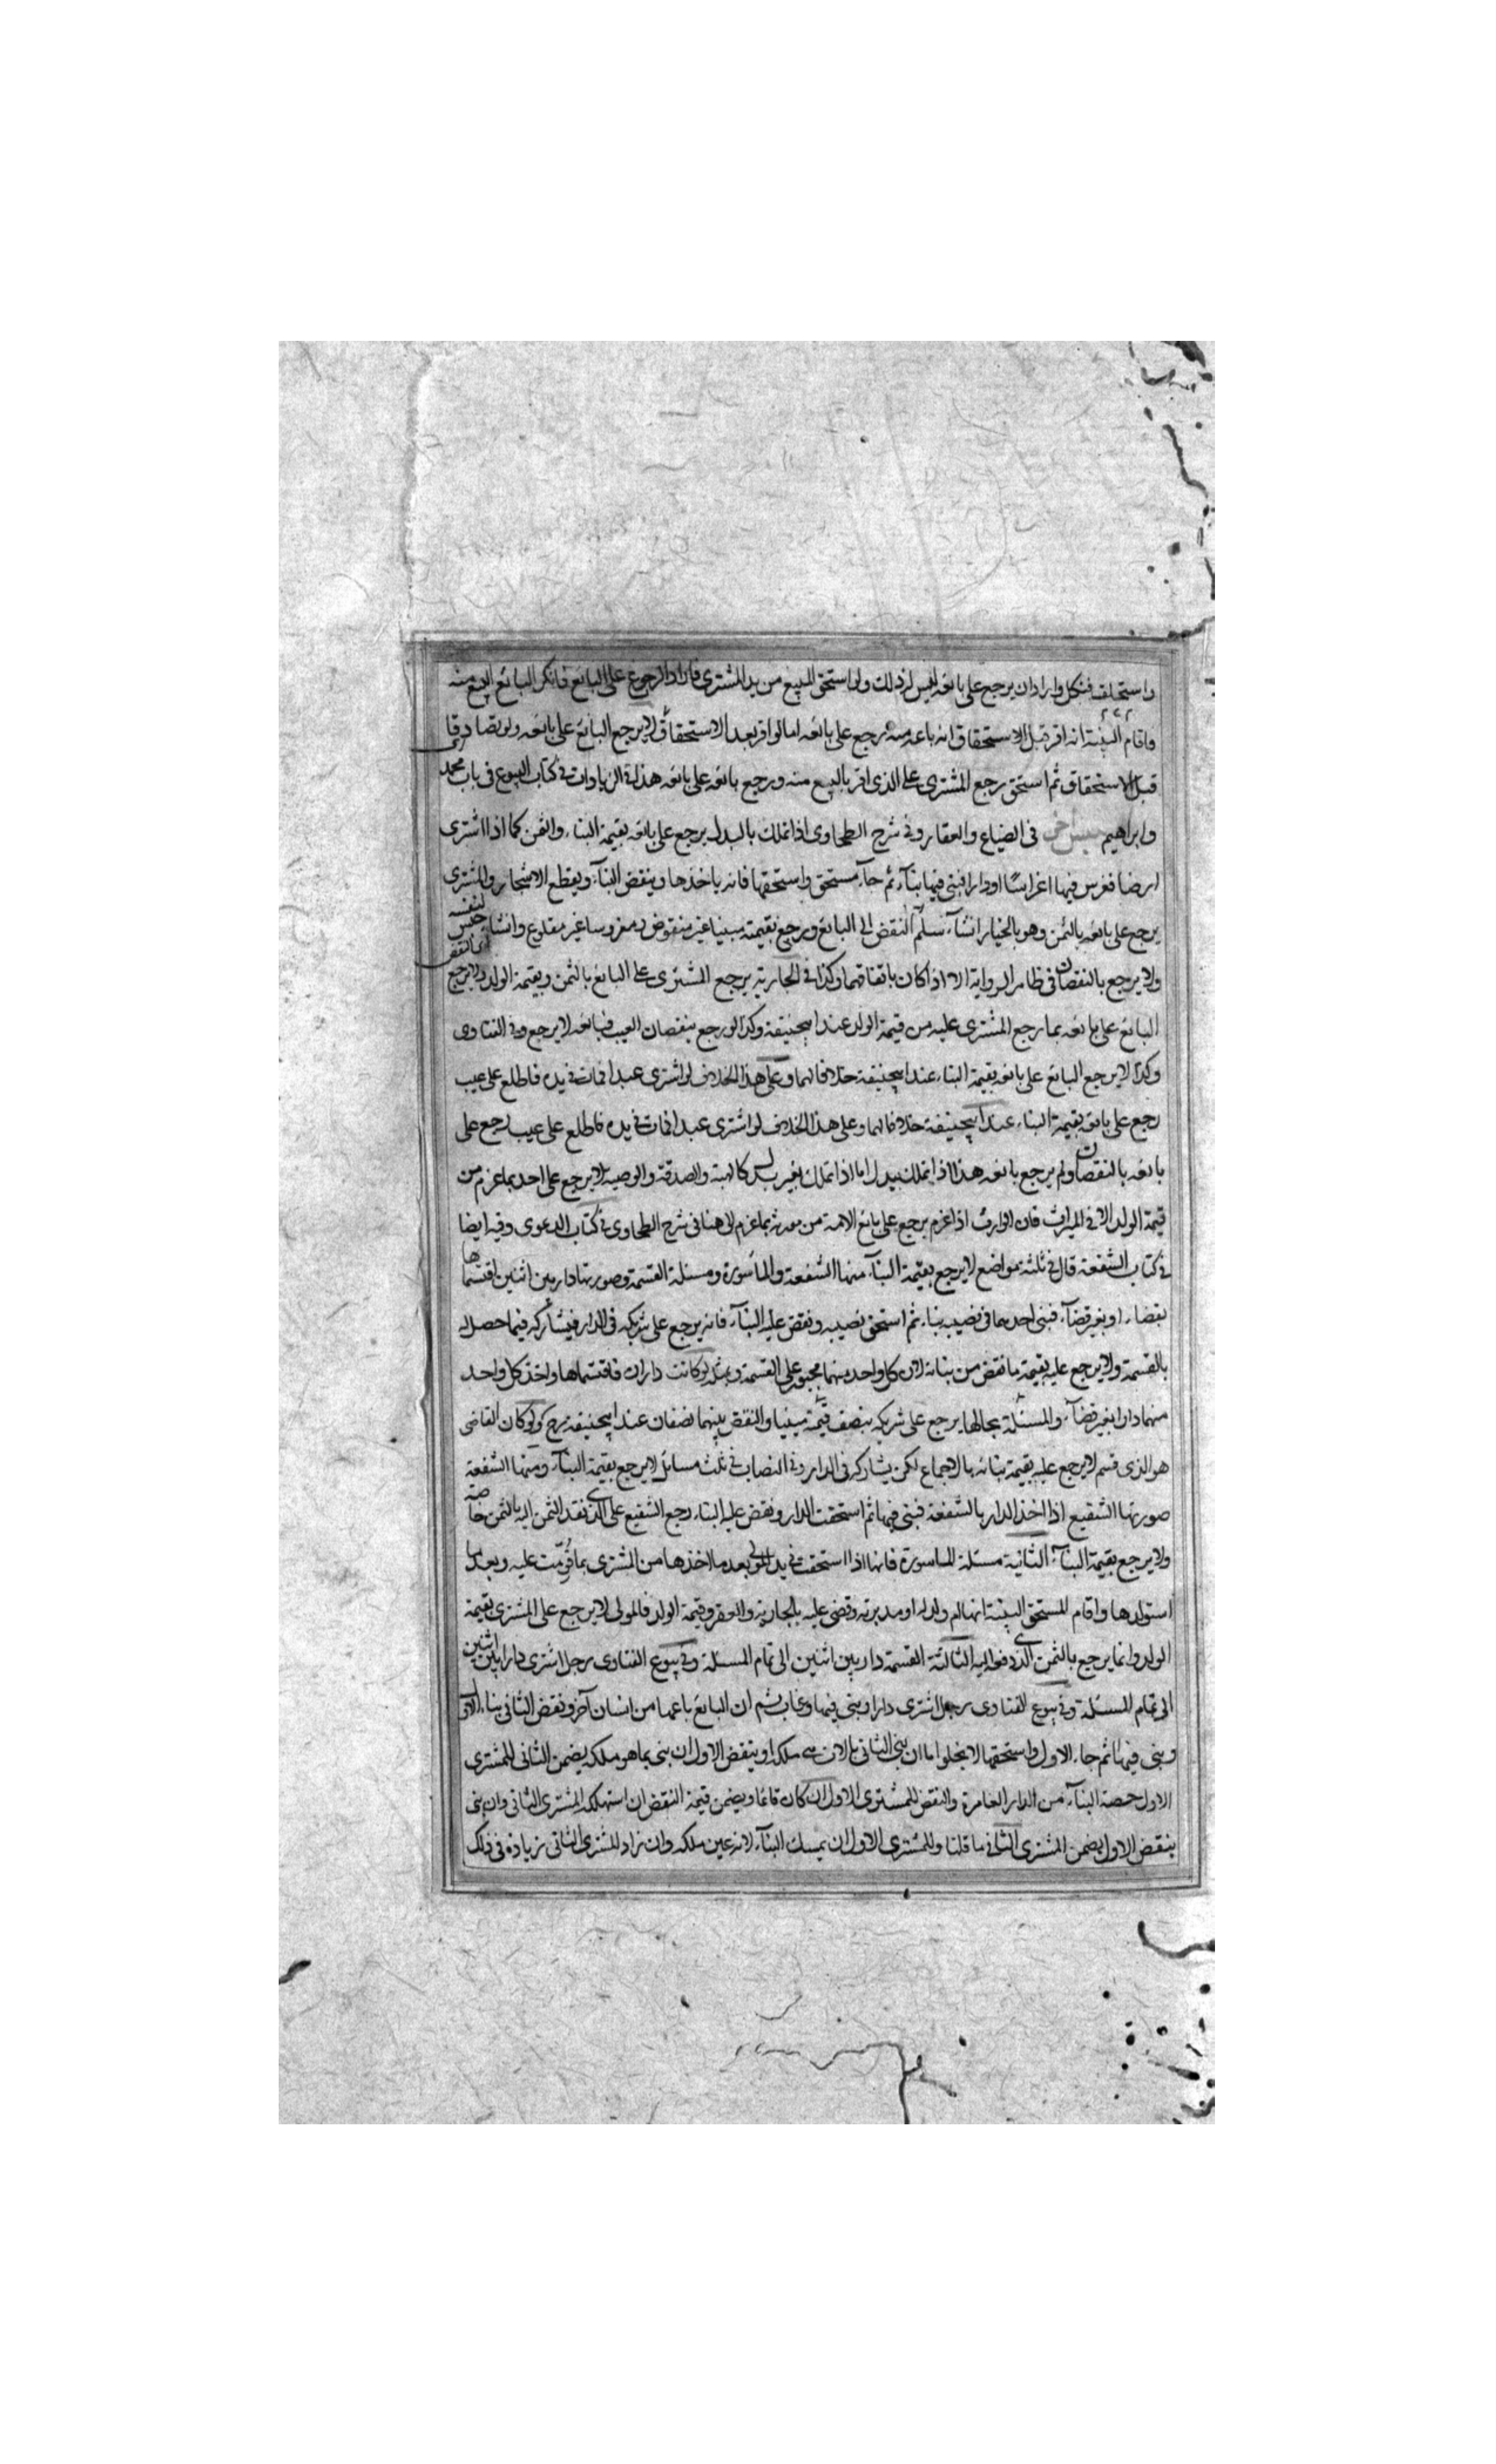 واستحلف فنكل واراد ان يرجع على بائعه ليس له ذلك ولو استحق المبيع من يد المشترى فاراد الرجوع على البائع فانكر البائع البيع منه
واقام البينة انه اقر قبل الاستحقاق انه باعه منه يرجع على بائعه اما لو اقر بعد الاستحقاق لا يرجع البائع على بائعه ولو تصادقا
قبل الاستحقاق ثم استحق رجع المشترى على الذى اقر بالبيع منه ورجع بائعه على بائعه هذا فى الزيادات فى كتاب البيوع فى باب محمد
وابراهيم فى الضياع والعقار وفى شرح الطحاوى اذا تملك بالبدل يرجع على بائعه بقيمة البناء والثمن كما اذا اشترى
ارضا فغرس فيها اغراسا او دارا فبنى فيها بناء ثم جاء مستحق واستحقها فانه ياخذها وينقض البناء ويقطع الاشجار والمشترى
يرجع على بائعه بالثمن وهو بالخيار ان شاء سلم النقض الى البائع ورجع بقيمته مبنيا غير منقوض ومغروسا غير مقلوع وان شاء حبس لنفسه النقض
ولا يرجع بالنقصان فى ظاهر الرواية الا اذا كان باتفاقهما وكذا فى الجارية يرجع المشترى على البائع بالثمن وبقيمة الولد ولا يرجع
البائع على بائعه بما رجع المشترى عليه من قيمة الولد عند ابيحنيفة وكذا لو رجع بنقصان العيب فبائعه لا يرجع وفى الفتاوى
وكذا لا يرجع البائع على بائعه بقيمة البناء عند ابيحنيفة خلافا لهما وعلى هذا الخلاف لو اشترى عبدا فمات فى يده فاطلع على عيب
رجع على بائعه بقيمة البناء عند ابيحنيفة خلافا لهما وعلى هذا الخلاف لو اشترى عبدا فمات فى يده فاطلع على عيب رجع على
بائعه بالنقصان ولم يرجع بائعه هذا اذا تملك ببدل اما اذا تملك بغير بدل كالهبة والصدقة والوصية لا يرجع على احد بما غرم من
قيمة الولد الا فى الميراث فان الوارث اذا غرم يرجع على بائع الامة من مورثه بما غرم الى هنا فى شرح الطحاوى فى كتاب الدعوى وفيه ايضا
فى كتاب الشفعة قال فى ثلثة مواضع لا يرجع بقيمة البناء منها الشفعة والمأسورة ومسئلة القسمة وصورتها دار بين اثنين اقتسماها
بقضاء او بغير قضاء فبنى احدهما فى نصيبه بناء ثم استحق نصيبه ونقض عليه البناء فانه يرجع على شريكه فى الدار فيشاركه فيما حصل له
بالقسمة ولا يرجع عليه بقيمة ما نقض من بنائه لان كل واحد منهما مجبور على القسمة وبمثله لو كانت داران فاقتسماها واخذ كل واحد
منهما دارا بغير قضاء والمسئلة بحالها يرجع على شريكه بنصف قيمته مبنيا والنقض بينهما نصفان عند ابيحنيفة رح ولو كان القاضى
هو الذى قسم لا يرجع عليه بقيمة بنائه بالاجماع لكن يشاركه فى الدار وفى النصاب فى ثلث مسائل لا يرجع بقيمة البناء ومنها الشفعة
صورتها الشفيع اذا اخذ الدار بالشفعة فبنى فيها ثم استحقت الدار ونقض عليه البناء رجع الشفيع على الذى نقد الثمن اليه بالثمن خاصة
ولا يرجع بقيمة البناء الثانية مسئلة الماسورة فانها اذا استحقت فى يد المولى بعد ما اخذها من المشترى بما قومت عليه وبعد ما
استولدها واقام المستحق البينة انها ام ولد له او مدبرته وقضى عليه بالجارية والعقر وقيمة الولد فالمولى لا يرجع على المشترى بقيمة
الولد وانما يرجع بالثمن الذى دفع اليه الثالثة القسمة دار بين اثنين الى تمام المسئلة وفى بيوع الفتاوى رجل اشترى دارا بين اثنين
الى تمام المسئلة وفى بيوع الفتاوى رجل اشترى دارا وبنى فيها وغاب ثم ان البائع باعها من انسان آخر ونقض الثانى بناء الاول
وبنى فيها ثم جاء الاول واستحقها لا يخلوا اما ان بنى الثانى بالات هى ملكه او بنقض الاول ان بنى بما هو ملكه يضمن الثانى للمشترى
الاول حصة البناء من الدار العامرة والنقض للمشترى الاول ان كان قائما ويضمن قيمة النقض ان استهلكه المشترى الثانى وان بنى
بنقض الاول يضمن المشترى الثانى ما قلنا وللمشترى الاول ان يمسك البناء لانه عين ملكه وان زاد المشترى الثانى زيادة فى ذلك